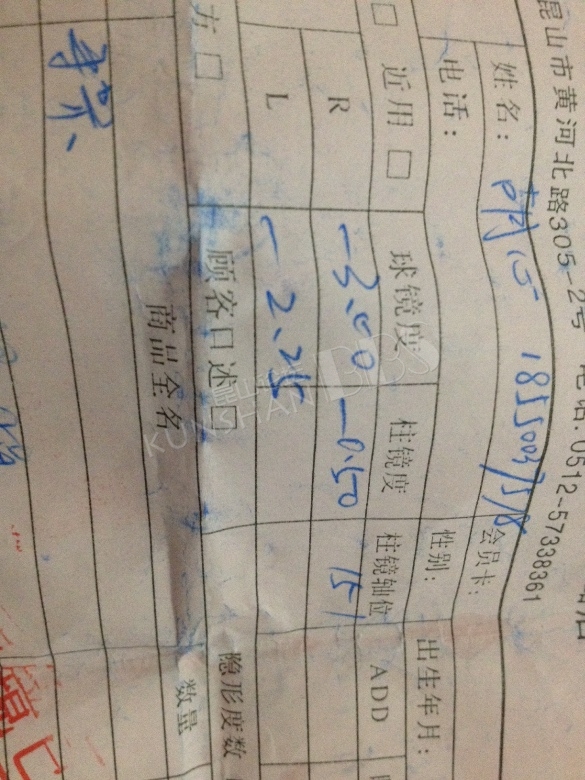 昆山市黄河北路305-2号 电话:0512-57338361
姓名: 18550037518 会员卡:
电话: 性别: 出生年月:
□ 近用 □ 球镜度 柱镜度 柱镜轴位 ADD
R -3.00 -0.50 151
L -2.25
方 □ 顾客口述 □ 隐形度数
商品全名 数量
KUNSHAN BBS